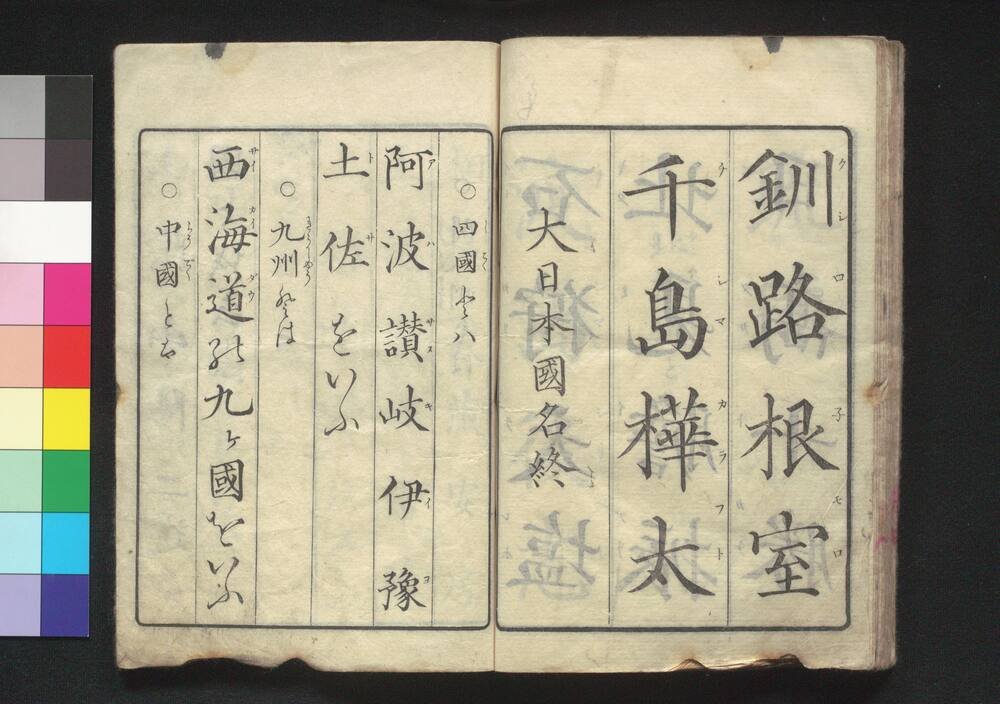 釧路根室
千島樺太
大日本國名終
○四國とハ
阿波讃岐伊豫
土佐をいふ
○九州とは
西海道の九ヶ國をいふ
○中國とは